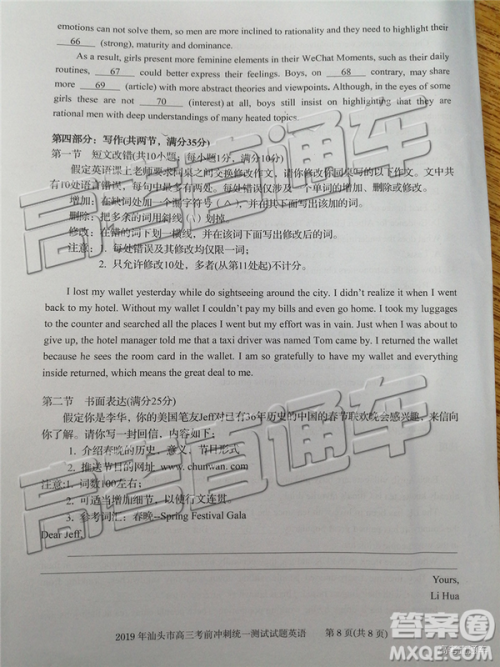 emotions can not solve them, so men are more inclined to rationality and they need to highlight their
66 (strong), maturity and dominance.
As a result, girls present more feminine elements in their WeChat Moments, such as their daily
routines, 67 could better express their feelings. Boys, on 68 contrary, may share
more 69 (article) with more abstract theories and viewpoints. Although, in the eyes of some
girls these are not 70 (interest) at all, boys still insist on highlighting that they are
rational men with deep understandings of many heated topics.
第四部分：写作(共两节，满分35分)
第一节 短文改错(共10小题，每小题1分，满分10分)
假定英语课上老师要求同桌之间交换修改作文，请你修改你同桌写的以下作文。文中共
有10处语言错误，每句中最多有两处。每处错误仅涉及一个单词的增加、删除或修改。
增加：在缺词处加一个漏字符号（∧），并在其下面写出该加的词。
删除：把多余的词用斜线（\）划掉。
修改：在错的词下划一横线，并在该词下面写出修改后的词。
注意：1. 每处错误及其修改均仅限一词；
2. 只允许修改10处，多者(从第11处起)不计分。
I lost my wallet yesterday while do sightseeing around the city. I didn't realize it when I went
back to my hotel. Without my wallet I couldn't pay my bills and even go home. I took my luggages
to the counter and searched all the places I went but my effort was in vain. Just when I was about to
give up, the hotel manager told me that a taxi driver was named Tom came by. I returned the wallet
because he sees the room card in the wallet. I am so gratefully to have my wallet and everything
inside returned, which means the great deal to me.
第二节 书面表达(满分25分)
假定你是李华，你的美国笔友Jeff对已有30年历史的中国的春节联欢晚会感兴趣，来信向
你了解。请你写一封回信，内容如下：
1. 介绍春晚的历史，意义，节目形式
2. 推送节目的网址 www. chunwan. com
注意:1. 词数100左右；
2. 可适当增加细节，以使行文连贯。
3. 参考词汇：春晚--Spring Festival Gala
Dear Jeff,
Yours,
Li Hua
2019 年汕头市高三考前冲刺统一测试试题英语 第 8 页(共 8 页)
高考直通车
高考直通车